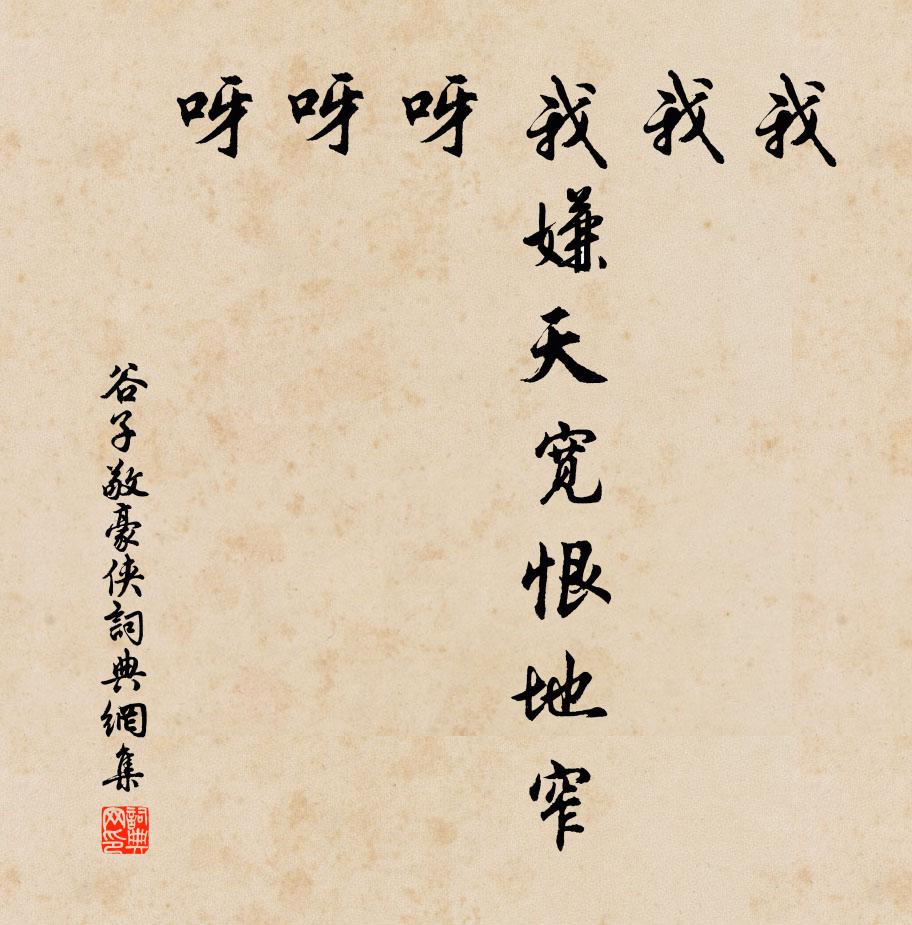 我
我
我嫌天寬恨地窄
呀
呀
呀
谷子敬豪俠詞典網集
詞典
网印